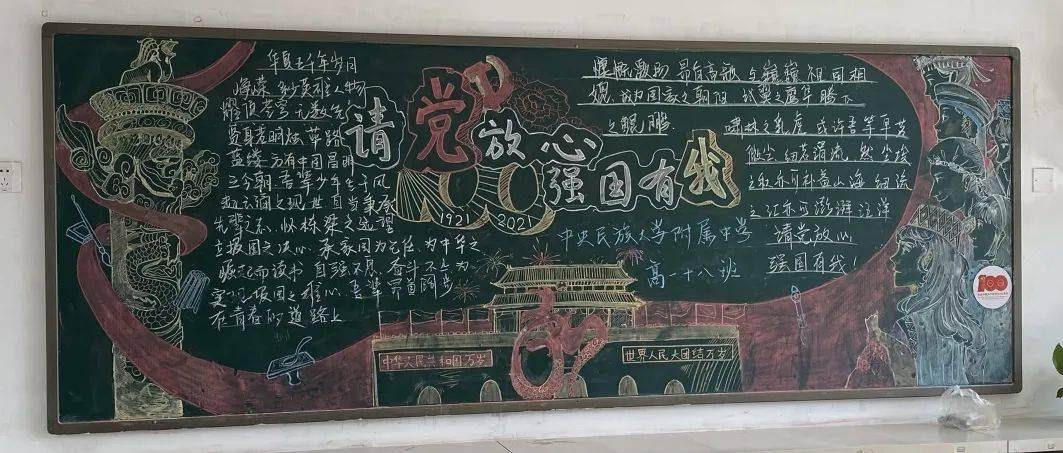 华夏五千年岁月
峥嵘 多少英雄人物
耀 苍穹 无数先
蓝缕 方有中国昌明
之今朝 吾辈少年生于风
起云涌之现世 自当秉承
先辈之志 怀栋梁之远望
立报国之决心 承家国为己任 为中华之
崛起而读书 自强不息 奋斗不止 为
实现报国之雄心 吾辈 勇 阔步
在青春的道路上
请党放心
强国有我
1921 2021
中央民族大学附属中学
高一十八班
中华人民共和国万岁
世界人民大团结万岁
慷慨激昂 昂首高歌 与巍巍祖国相
媲 故为国家之朝阳 试翼之鹰隼 腾飞
之鲲鹏
啸林之乳虎 或许吾等卑若
微尘 细若涓流 然尘埃
之微亦可补益山海 细流
之江亦可澎湃汪洋
请党放心
强国有我！
100